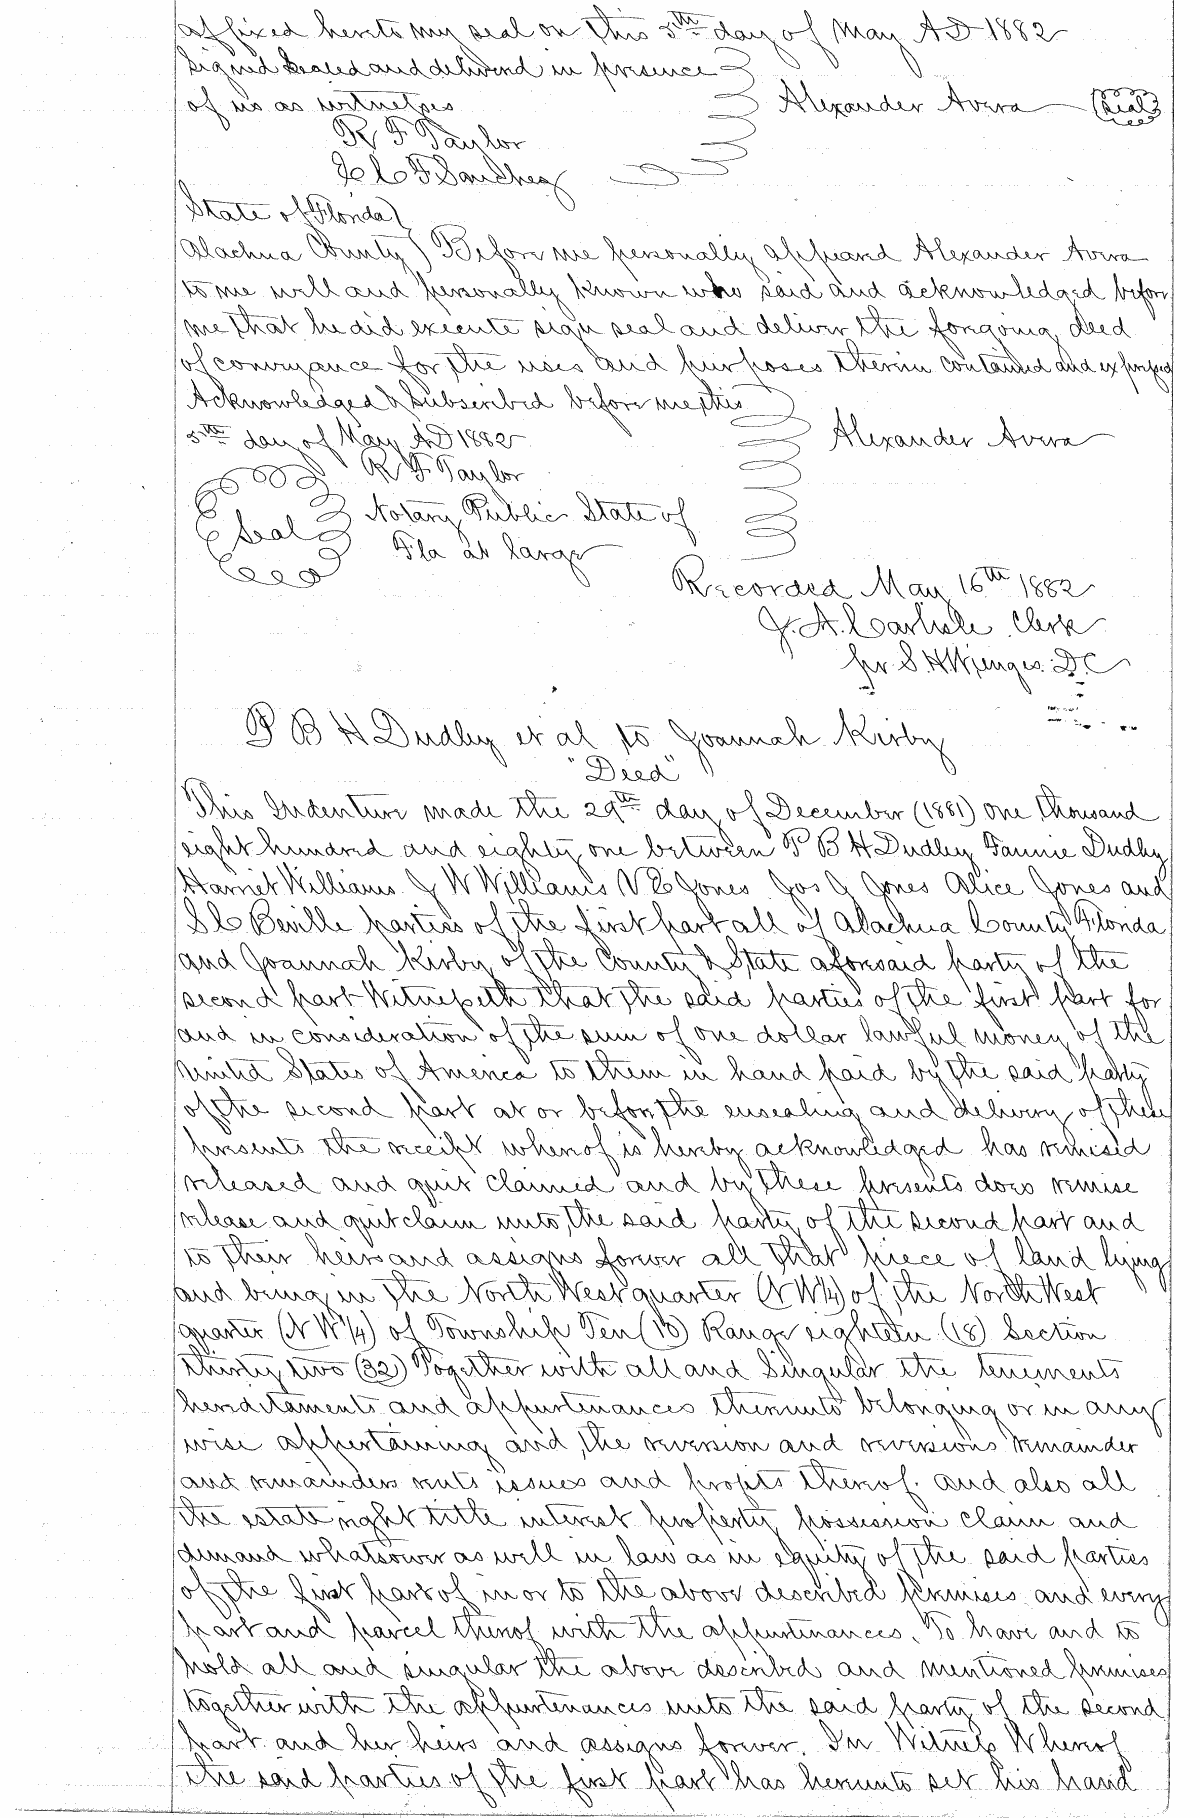 affixed hereto my seal on this 5th day of May AD 1882
Signed Sealed and delivered in presence
of us as witnesses
Alexander Avera (Seal)
R F Taylor
F Sanchez
State of Florida)
Alachua County) Before me personally appeared Alexander Avera
to me well and personally known who said and acknowledged before
me that he did execute sign seal and deliver the foregoing deed
of conveyance for the uses and purposes therein contained and expressed
Acknowledged & Subscribed before me this
5th day of May AD 1882
Alexander Avera
R F Taylor
Notary Public State of
Seal
Fla at large
Recorded May 16th 1882
J. A. Carlisle Clerk
pr S. H. Wienges D.C
P B H Dudley et al to Joannah Kirby
"Deed"
This Indenture made the 29th day of December (1881) one thousand
eight hundred and eighty one between P B H Dudley Fannie Dudley
Harriet Williams J W Williams V E Jones Jos A Jones Alice Jones and
S C Beville parties of the first part all of Alachua County Florida
and Joannah Kirby of the County & State aforesaid party of the
second part Witnesseth that the said parties of the first part for
and in consideration of the sum of one dollar lawful money of the
United States of America to them in hand paid by the said party
of the second part at or before the ensealing and delivery of these
presents the receipt whereof is hereby acknowledged has remised
released and quit claimed and by these presents does remise
release and quit claim unto the said party of the second part and
to their heirs and assigns forever all that piece of land lying
and being in the North West quarter (N W 1/4) of the North West
quarter (N W 1/4) of Township Ten (10) Range eighteen (18) Section
thirty two (32) Together with all and Singular the tenements
hereditaments and appurtenances thereunto belonging or in any
wise appertaining and the reversion and reversions remainder
and remainders rents issues and profits thereof. and also all
the estate right title interest property possession claim and
demand whatsoever as well in law as in equity of the said parties
of the first part of in or to the above described premises and every
part and parcel thereof with the appurtenances. To have and to
hold all and singular the above described and mentioned premises
together with the appurtenances unto the said party of the second
part and her heirs and assigns forever. In Witness Whereof
the said parties of the first part has hereunto set his hand